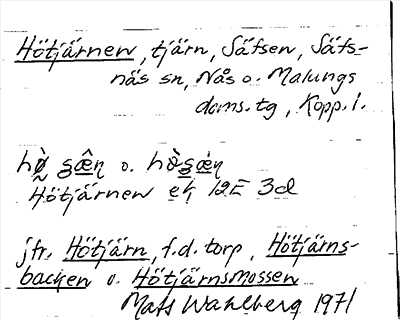 Hötjärnen, tjärn, Säfsen, Säfs-
näs sn, Nås o. Malungs
doms.tg, Kopp.l.
hø̀ ʂæ̂n o. hø̀ʂæ̣n
Hötjärnen ek 12E 3d
jfr. Hötjärn, f.d. torp, Hötjärns-
backen o. Hötjärnsmossen
Mats Wahlberg 1971